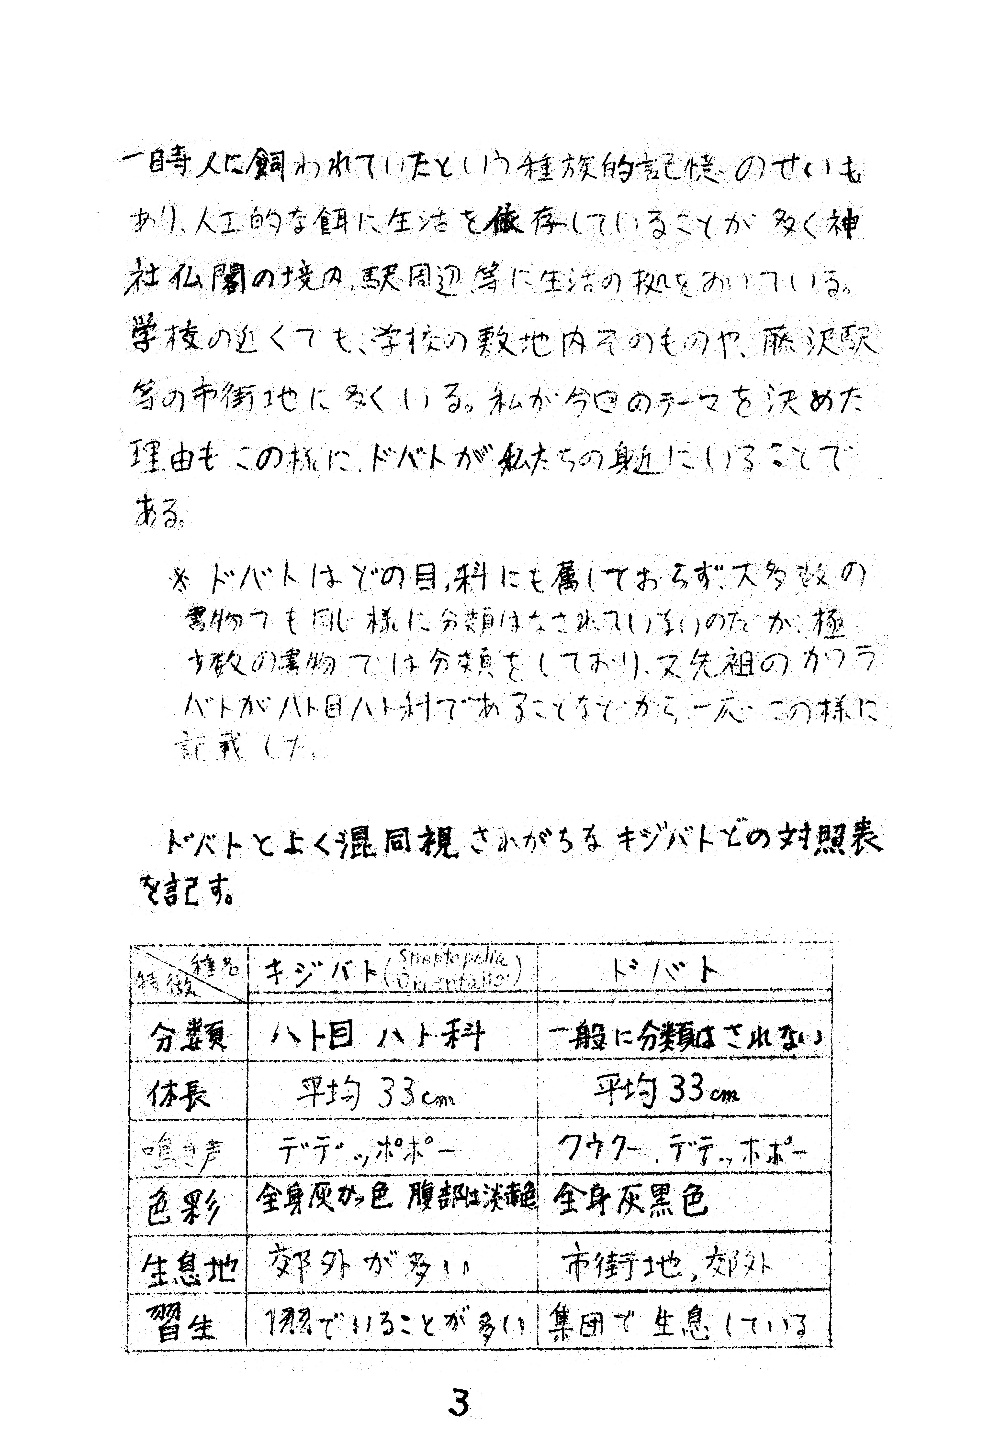 一時人に飼われていたという種族的記憶のせいも
あり、人工的な餌に生活を依存していることが多く神
社仏閣の境内、駅周辺等に生活の拠をおいている。
学校の近くでも、学校の敷地内そのものや、藤沢駅
等の市街地に多くいる。私が今回のテーマを決めた
理由もこの様に、ドバトが私たちの身近にいることで
ある。
※ ドバトはどの目,科にも属しておらず、大多数の
書物でも同じ様に分類はなされていないのだが、極
少数の書物では分類をしており、又先祖のカワラ
バトがハト目ハト科であることなどから、一応この様に
記載した。
ドバトとよく混同視されがちなキジバトとの対照表
を記す。
種名 特徴 キジバト(Streptopelia Orientalis) ドバト
分類 ハト目 ハト科 一般に分類はされない
体長 平均 33cm 平均 33cm
鳴き声 デデッポポー クウクー、デデッポポー
色彩 全身灰かっ色 腹部は淡赤色 全身灰黒色
生息地 郊外が多い 市街地,郊外
習生 1羽でいることが多い 集団で生息している
3